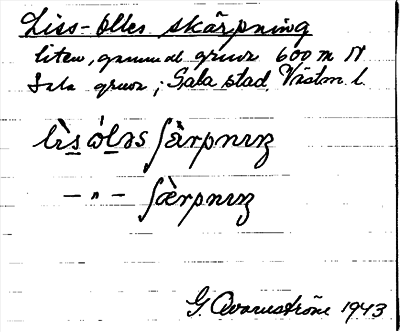 Liss-Olles skärpning
liten, gammal gruva 600 m N
Sala gruva; Sala stad, Västm. l.
lìs ólǝs ʃàrpnıŋ
— " — ʃæ̀rpnıŋ
G. Qvarnström 1943